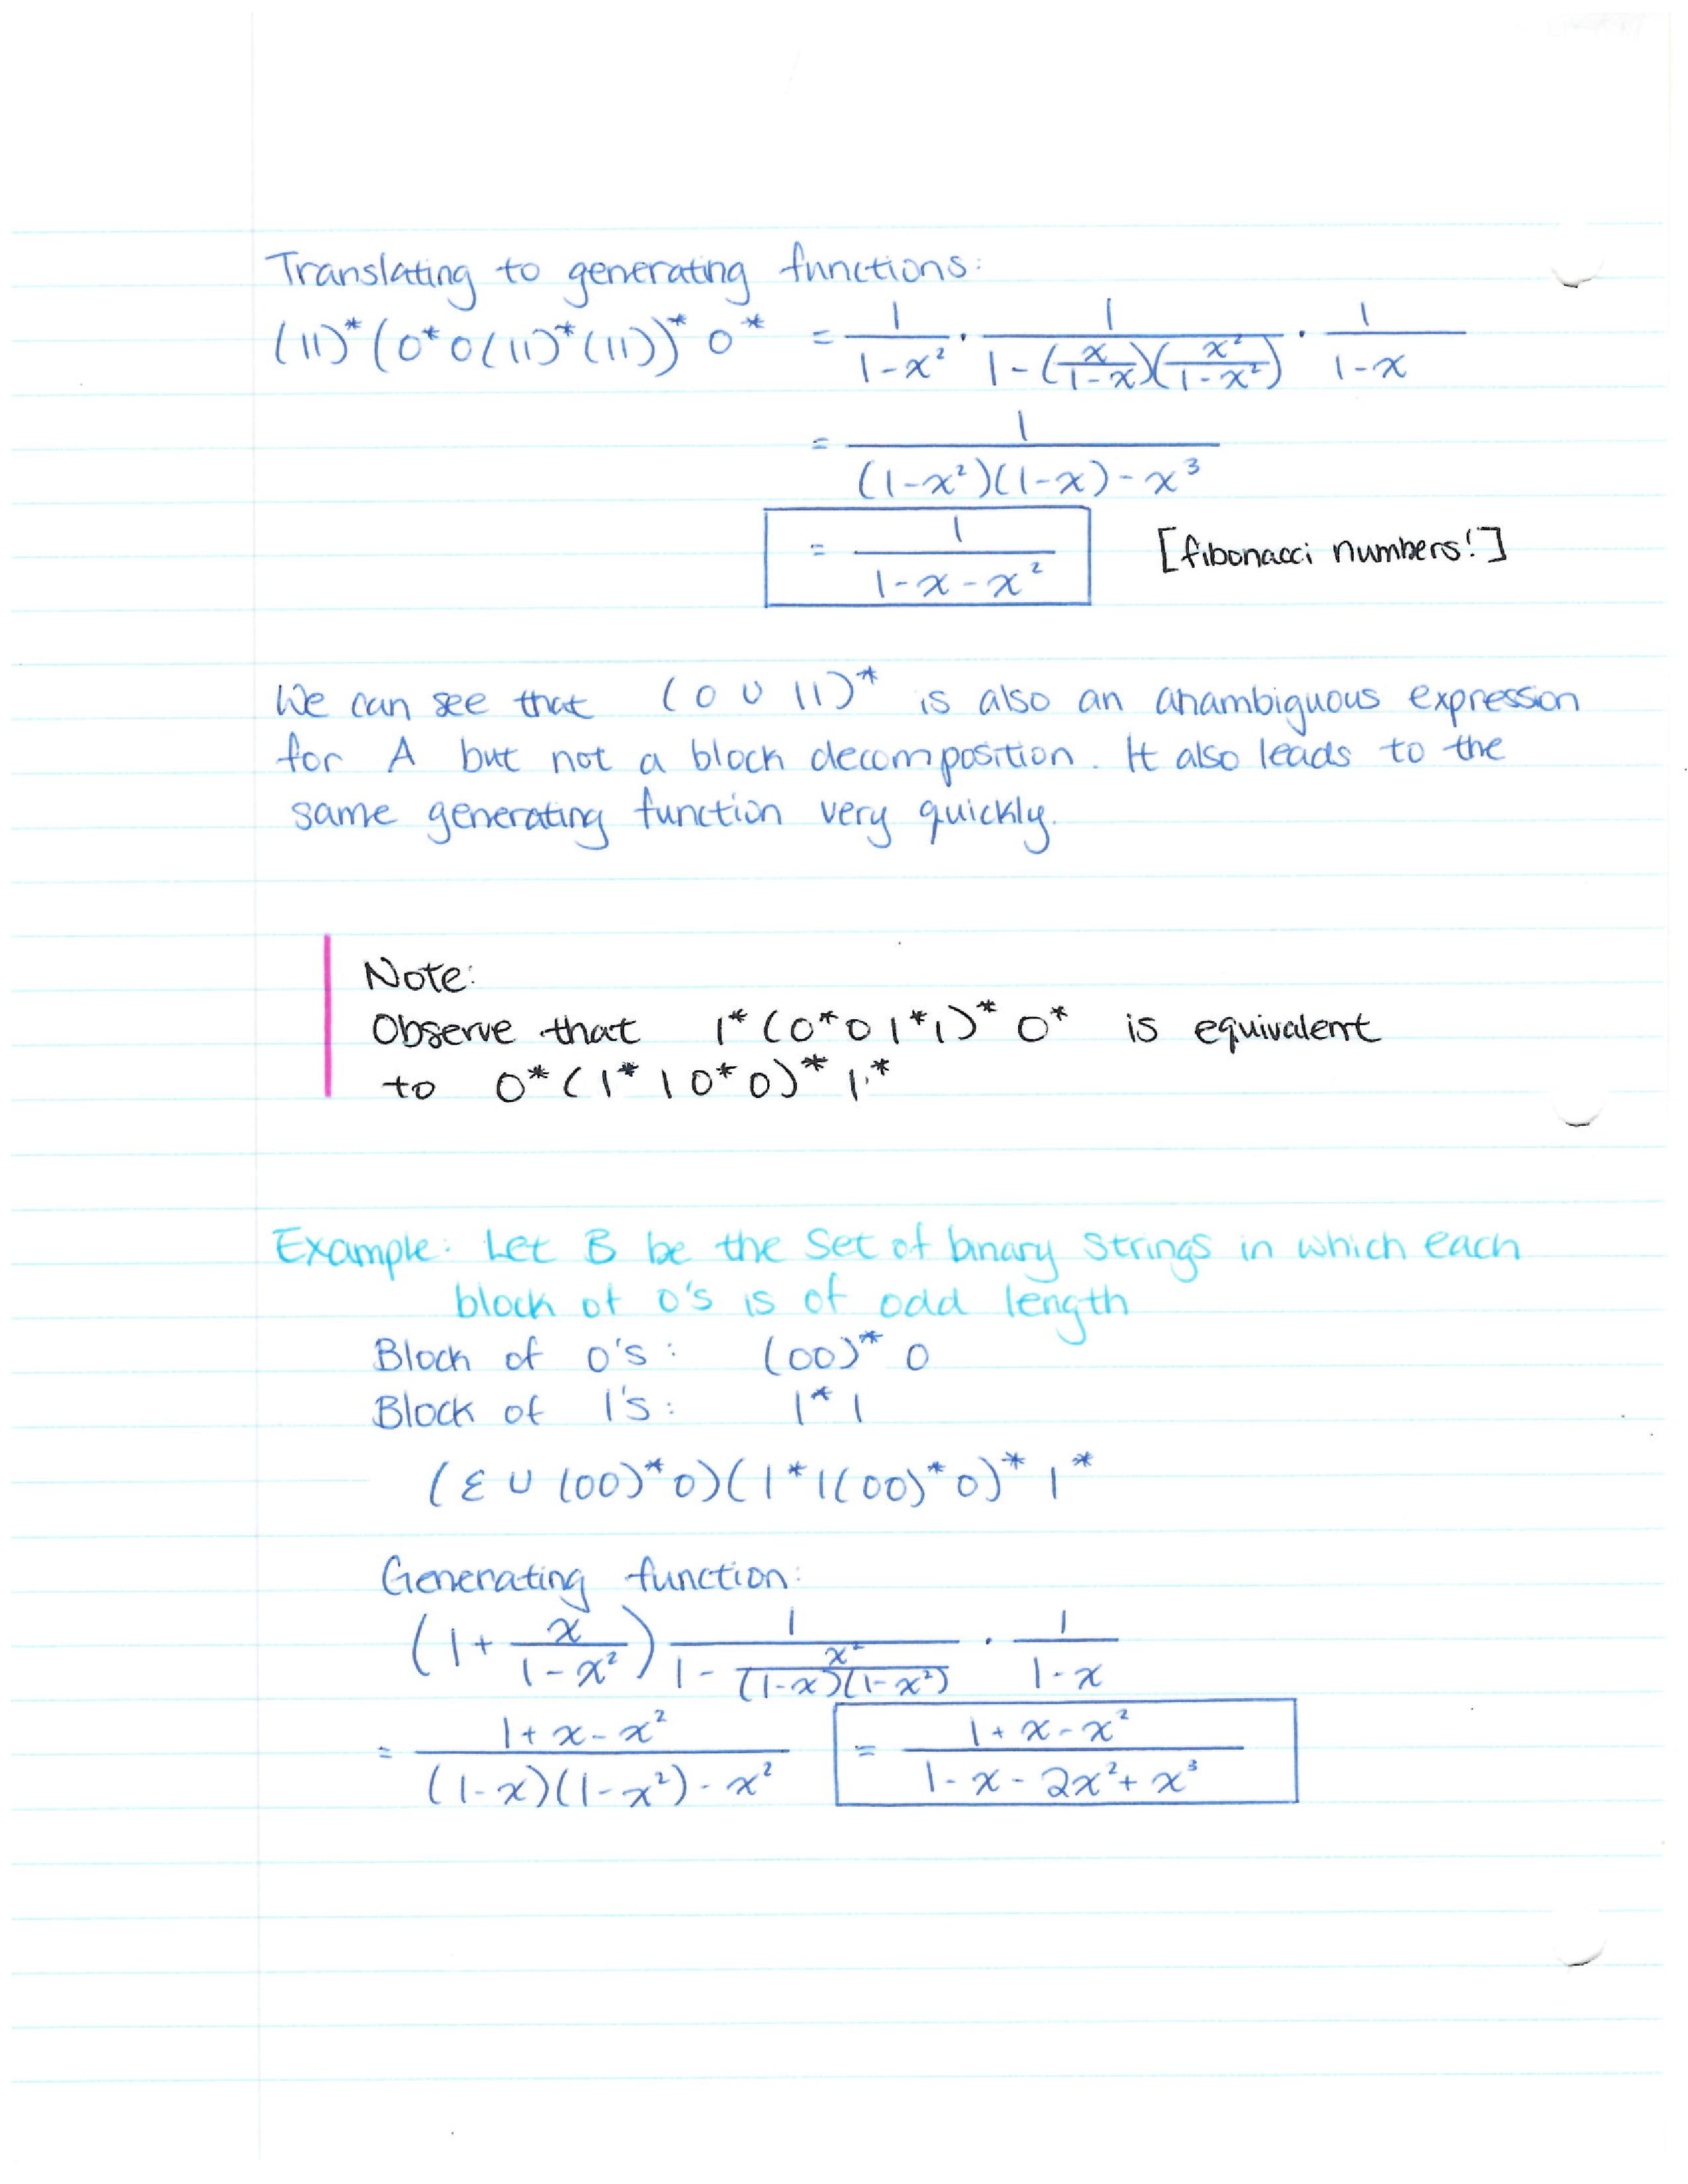 Translating to generating functions:
(11)*(0*0(11)*(11))*0* = 1/(1-x²) · 1/(1-(x/(1-x))(x²/(1-x²))) · 1/(1-x)
= 1/((1-x²)(1-x)-x³)
= 1/(1-x-x²) [fibonacci numbers!]
We can see that (0 ∪ 11)* is also an anambiguous expression
for A but not a block decomposition. It also leads to the
same generating function very quickly.
Note:
Observe that 1*(0*01*1)*0* is equivalent
to 0*(1*10*0)*1*
Example: Let B be the set of binary strings in which each
block of 0's is of odd length
Block of 0's: (00)*0
Block of 1's: 1*1
(ε ∪ (00)*0)(1*1(00)*0)*1*
Generating function:
(1+x/(1-x²)) 1/(1-x²/((1-x)(1-x²))) · 1/(1-x)
= (1+x-x²)/((1-x)(1-x²)-x²) = (1+x-x²)/(1-x-2x²+x³)